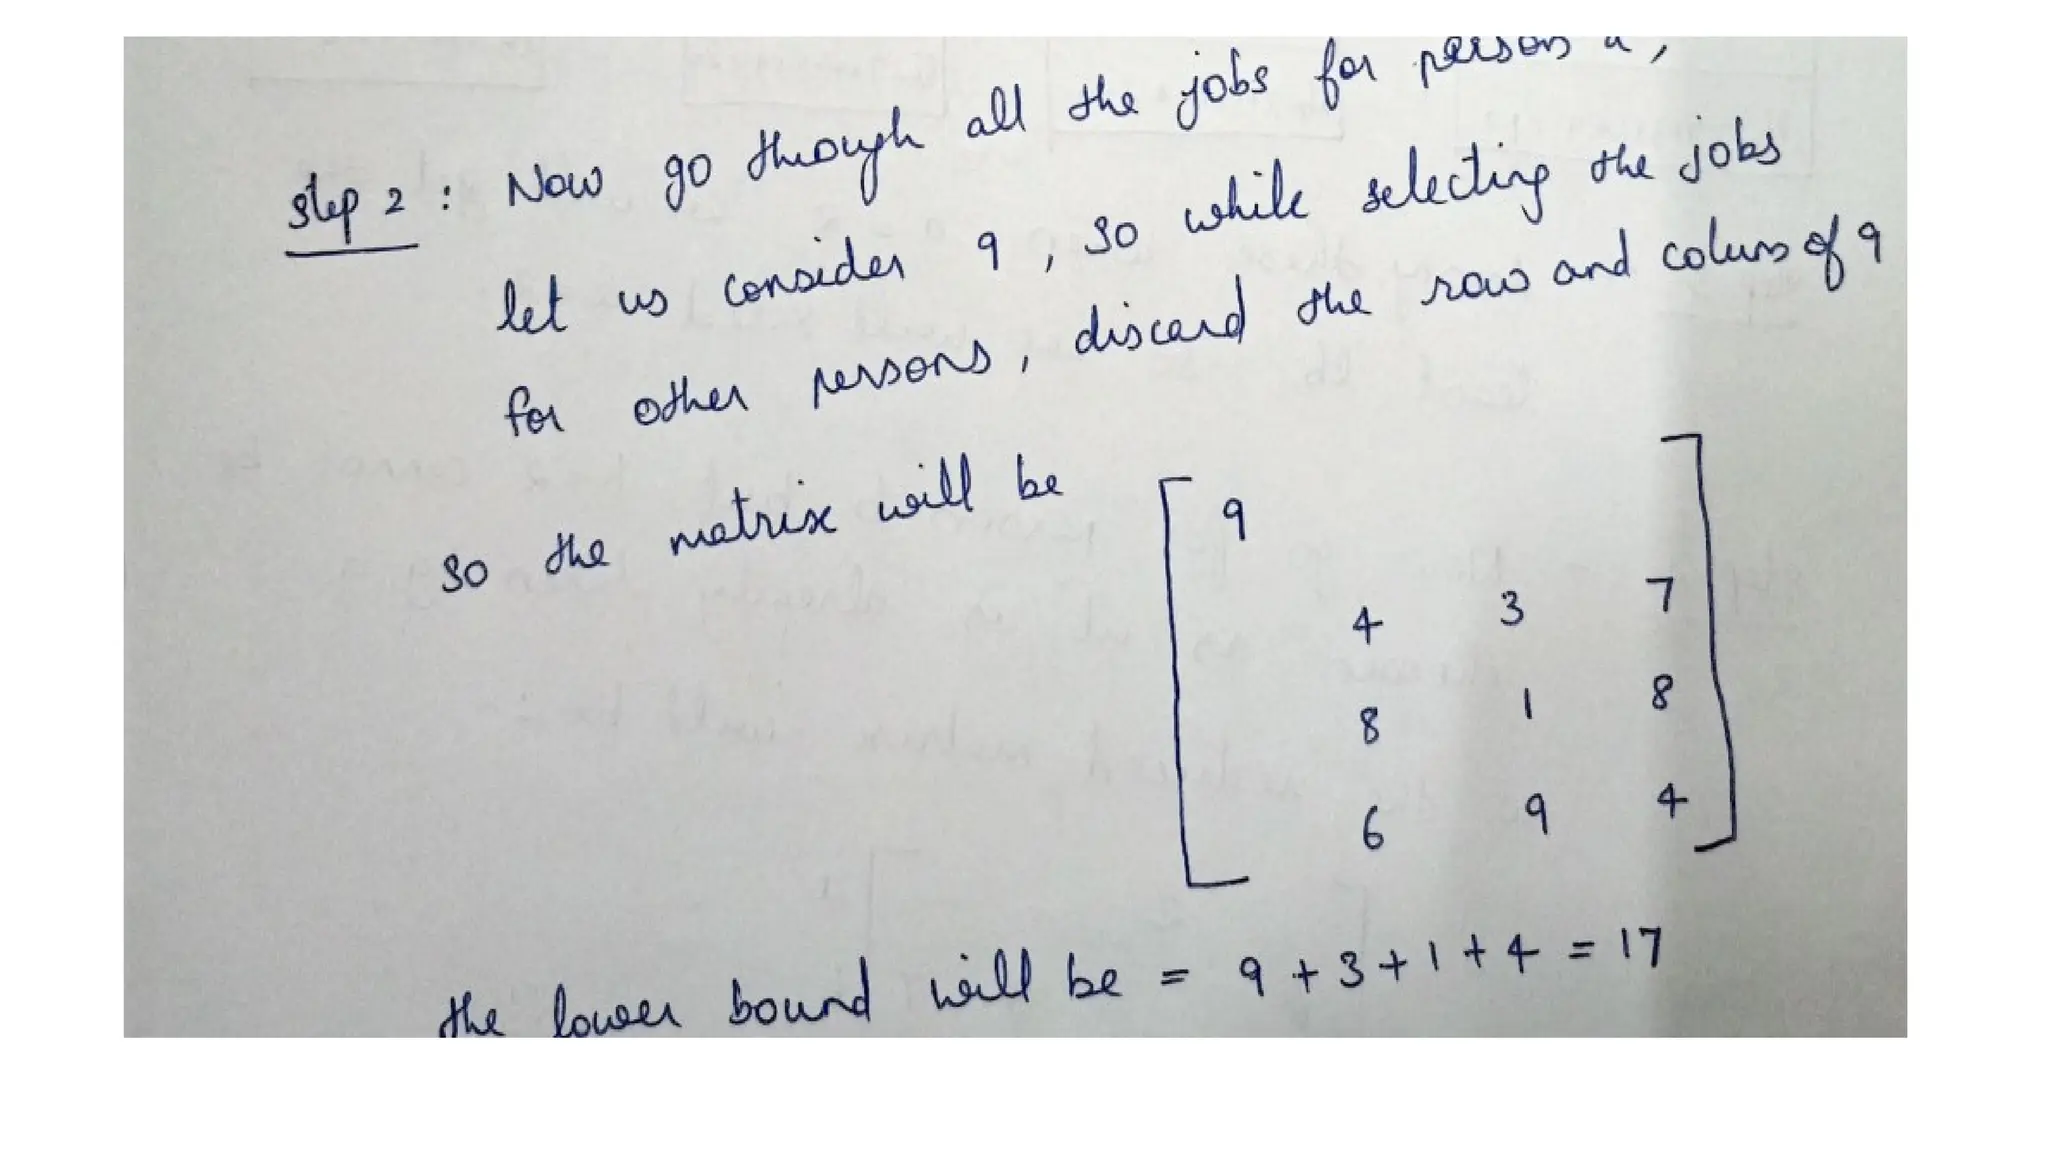 step 2 : Now go through all the jobs for person a,
let us consider 9, so while selecting the jobs
for other persons, discard the row and column of 9
so the matrix will be
9
4 3 7
8 1 8
6 9 4
the lower bound will be = 9 + 3 + 1 + 4 = 17